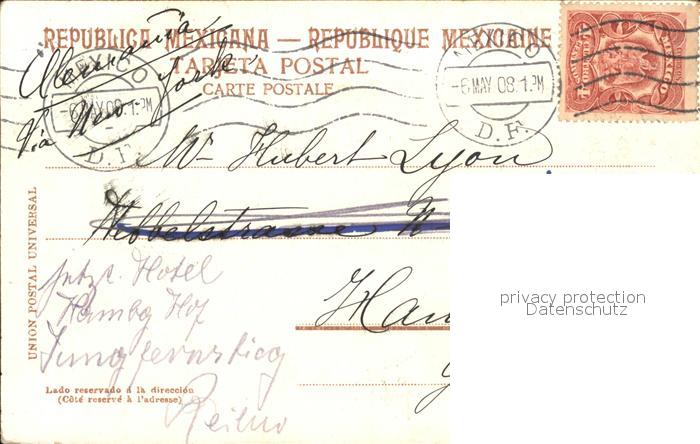 REPUBLICA MEXICANA — REPUBLIQUE MEXICAINE
TARJETA POSTAL
CARTE POSTALE
Alemania
Via New York
MEXICO
-6 MAY 08. 1. PM
D. F.
MEXICO
-6 MAY 08. 1. PM
D. F.
Hubert Lyon
Hebbelstrasse
Ham
jetzt. Hotel
Hambg Hof
Jungfernstieg
UNION POSTAL UNIVERSAL
Lado reservado á la dirección
(Côté reservé à l'adresse)
privacy protection
Datenschutz